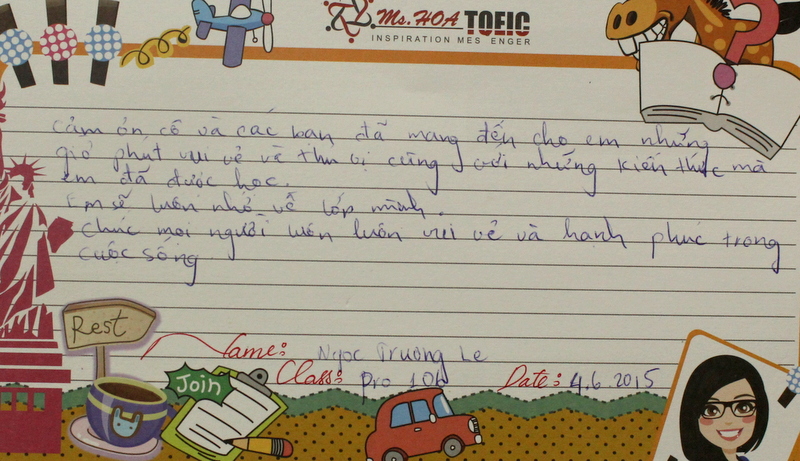 Ms. HOA TOEIC
INSPIRATION MES ENGER
?
Cảm ơn cô và các bạn đã mang đến cho em những
giờ phút vui vẻ và thú vị cùng với những kiến thức mà
em đã được học.
Em sẽ luôn nhớ về lớp mình.
Chúc mọi người luôn luôn vui vẻ và hạnh phúc trong
cuộc sống
Rest
Name: Ngọc Trương Le
Join
Class: Pro 106
Date: 4.6.2015